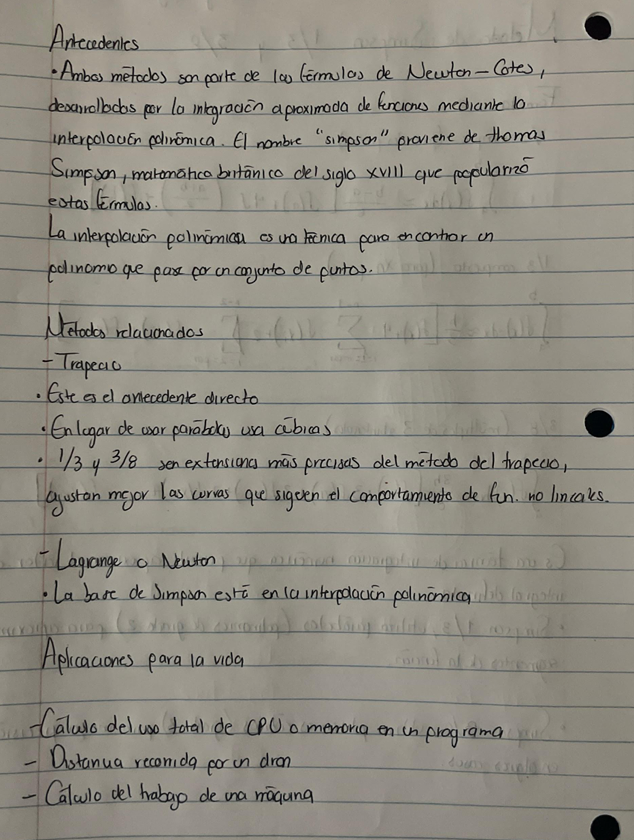 Antecedentes
• Ambos métodos son parte de las fórmulas de Newton-Cotes,
desarrolladas por la integración aproximada de funciones mediante la
interpolación polinómica. El nombre "simpson" proviene de thomas
Simpson, matemático británico del siglo XVIII que popularizó
estas fórmulas.
La interpolación polinómica es una técnica para encontrar un
polinomio que pase por un conjunto de puntos.
Metodos relacionados
- Trapecio
• Este es el antecedente directo
• En lugar de usar parábolas usa cúbicas
• 1/3 y 3/8 son extensiones más precisas del método del trapecio,
ajustan mejor las curvas que siguen el comportamiento de fun. no lineales.
- Lagrange o Newton
• La base de Simpson está en la interpolación polinómica
Aplicaciones para la vida
- Cálculo del uso total de CPU o memoria en un programa
- Distancia recorrida por un dron
- Cálculo del trabajo de una máquina